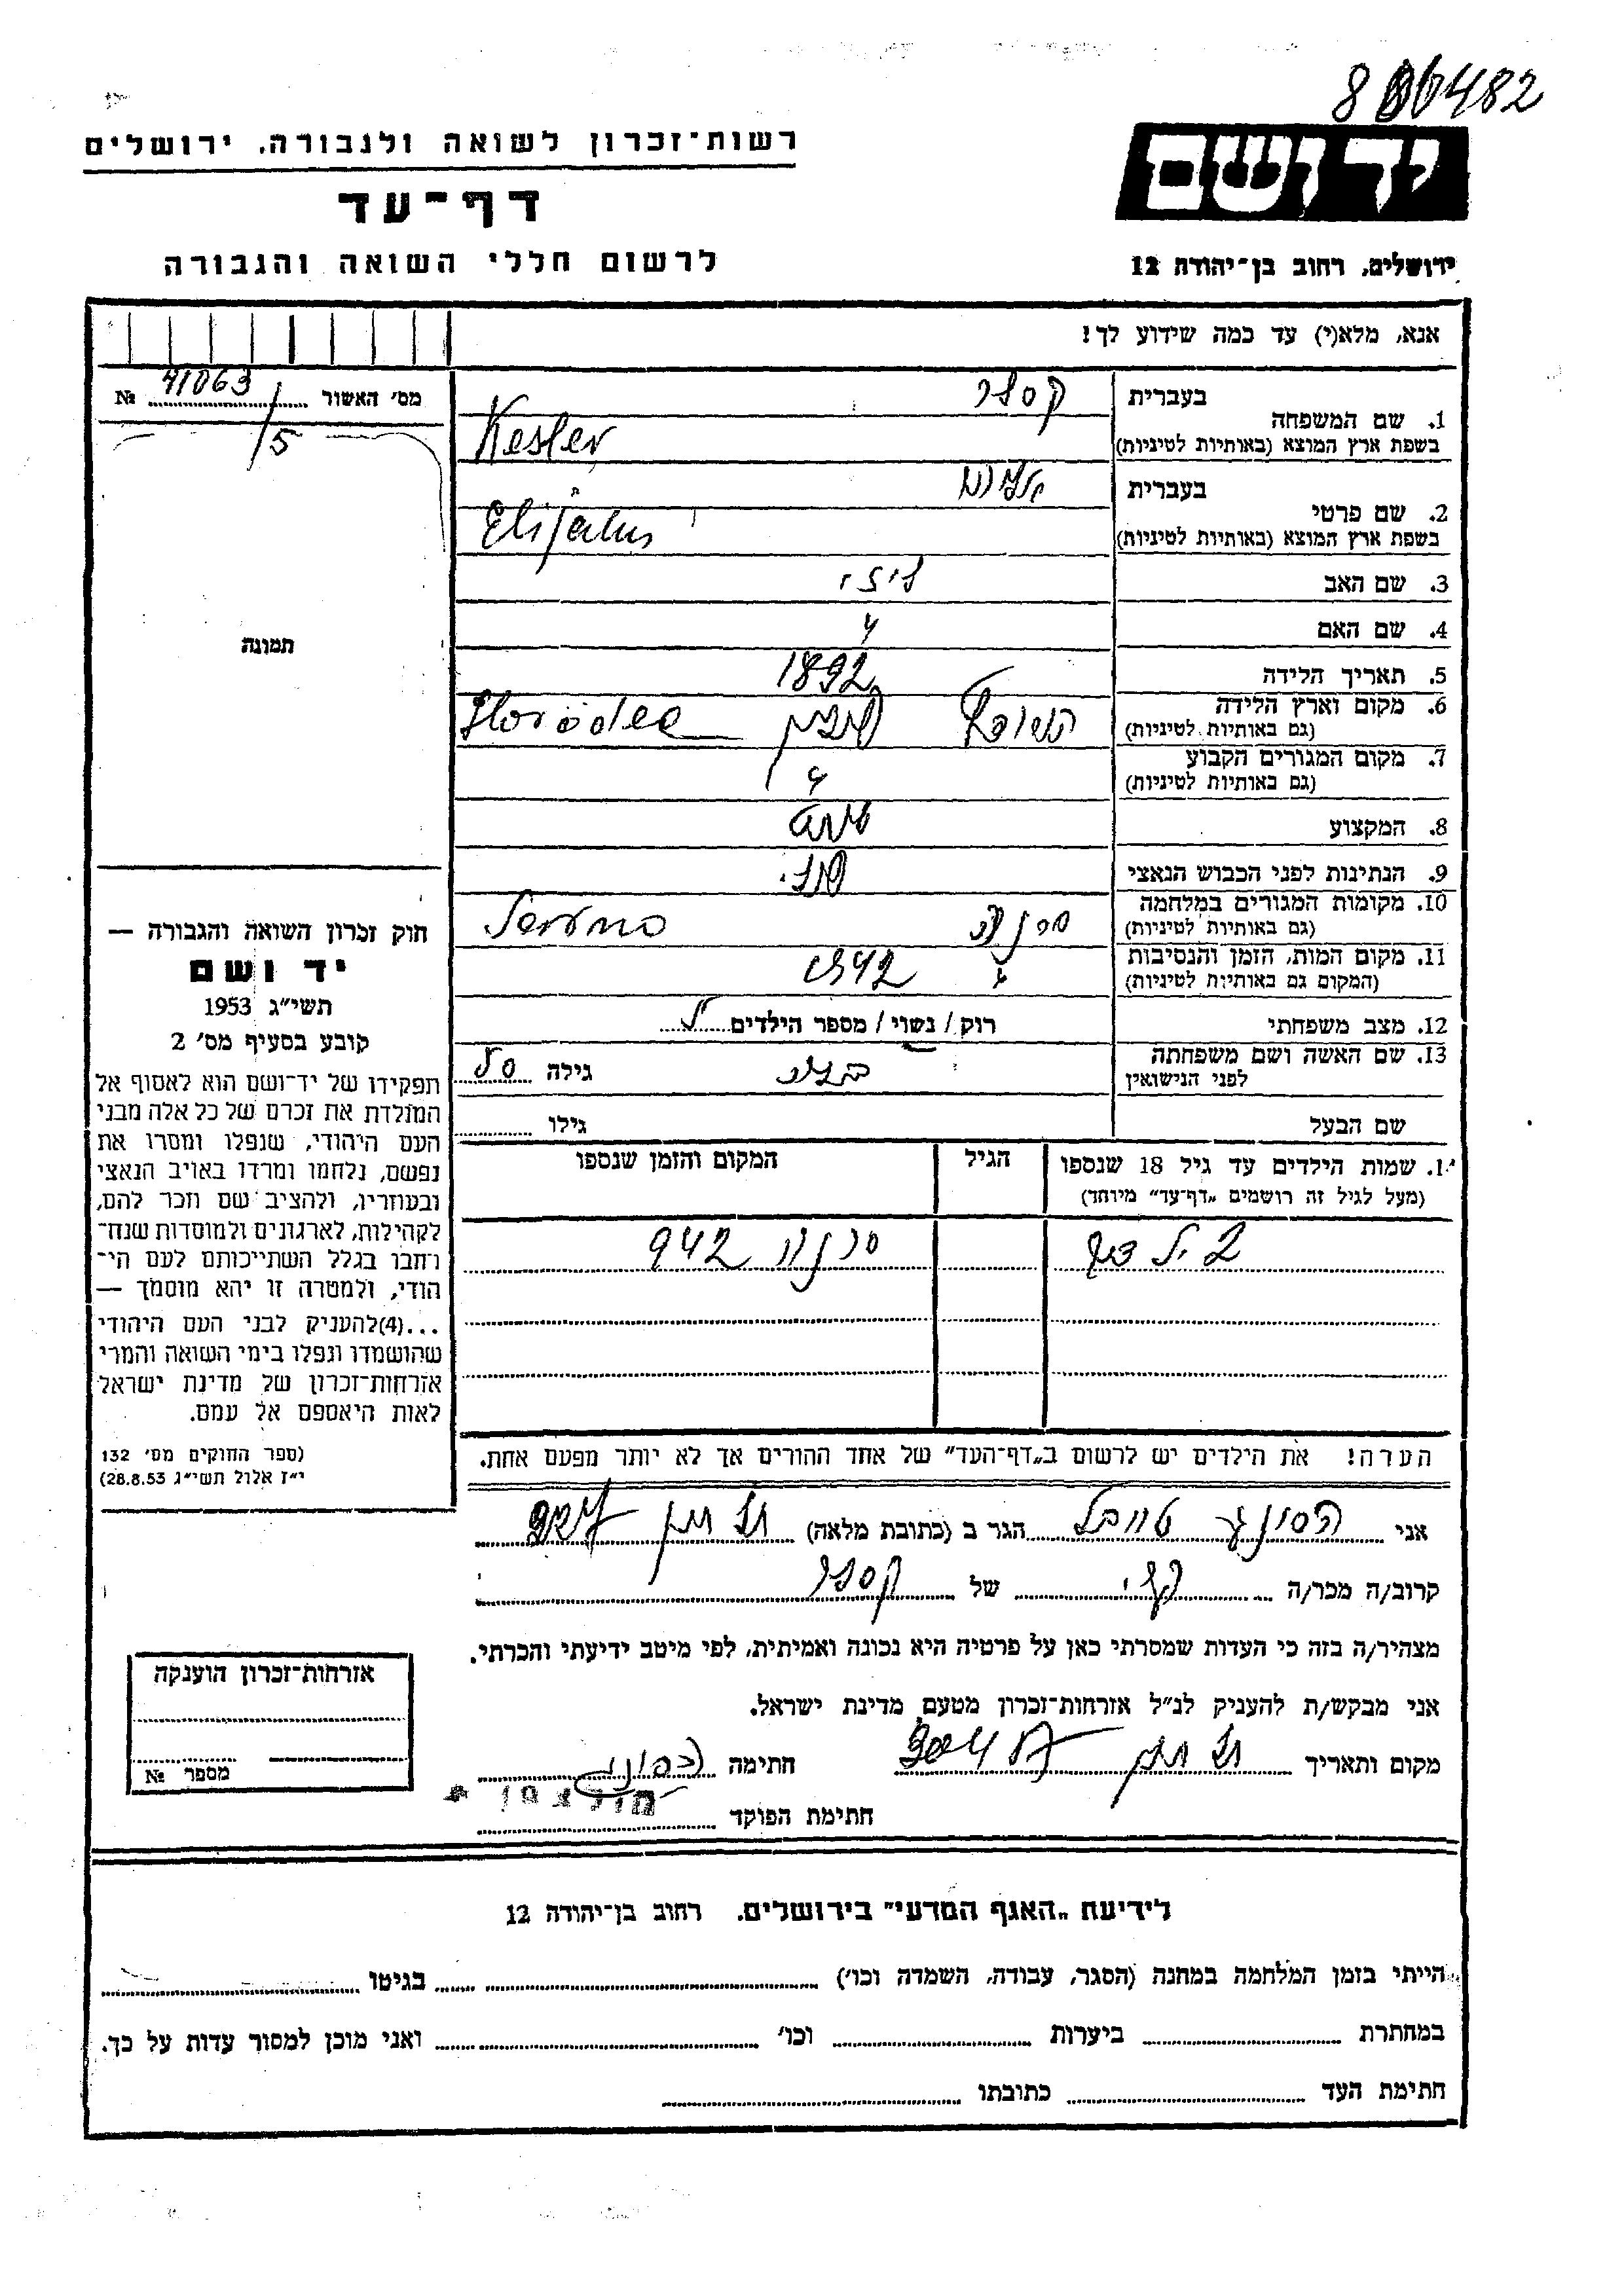 8 806482
רשות־זכרון לשואה ולגבורה, ירושלים
יד ושם
דף־עד
לרשום חללי השואה והגבורה
ירושלים, רחוב בן־יהודה 12
אנא, מלא(י) עד כמה שידוע לך!
מס׳ האשור № 41063/5
תמונה
בעברית קסלר
1. שם המשפחה
בשפת ארץ המוצא (באותיות לטיניות) Kesler
בעברית אליהו
2. שם פרטי
בשפת ארץ המוצא (באותיות לטיניות) Elijahu
3. שם האב
4. שם האם
5. תאריך הלידה 1892
6. מקום וארץ הלידה
(גם באותיות לטיניות) פולין Horodec
7. מקום המגורים הקבוע
(גם באותיות לטיניות)
8. המקצוע
9. הנתינות לפני הכבוש הנאצי פול.
10. מקומות המגורים במלחמה
(גם באותיות לטיניות)
11. מקום המות, הזמן והנסיבות
(המקום גם באותיות לטיניות) 1942
12. מצב משפחתי רוק / נשוי / מספר הילדים
13. שם האשה ושם משפחתה
לפני הנישואין גילה
שם הבעל גילו
1. שמות הילדים עד גיל 18 שנספו הגיל המקום והזמן שנספו
(מעל לגיל זה רושמים „דף־עד״ מיוחד)
2 ילדים 942
הערה! את הילדים יש לרשום ב„דף־העד״ של אחד ההורים אך לא יותר מפעם אחת.
חוק זכרון השואה והגבורה —
יד ושם
תשי״ג 1953
קובע בסעיף מס׳ 2
תפקידו של יד־ושם הוא לאסוף אל
המולדת את זכרם של כל אלה מבני
העם היהודי, שנפלו ומסרו את
נפשם, נלחמו ומרדו באויב הנאצי
ובעוזריו, ולהציב שם וזכר להם,
לקהילות, לארגונים ולמוסדות שנח־
רחבו בגלל השתייכותם לעם הי־
הודי, ולמטרה זו יהא מוסמך —
...(4)להעניק לבני העם היהודי
שהושמדו ונפלו בימי השואה והמרי
אזרחות־זכרון של מדינת ישראל
לאות היאספם אל עמם.
(ספר החוקים מס׳ 132
י״ז אלול תשי״ג 28.8.53)
אני הגר ב (כתובת מלאה)
קרוב/ה מכר/ה של קסלר
מצהיר/ה בזה כי העדות שמסרתי כאן על פרטיה היא נכונה ואמיתית, לפי מיטב ידיעתי והכרתי.
אני מבקש/ת להעניק לנ״ל אזרחות־זכרון מטעם מדינת ישראל.
מקום ותאריך חתימה
חתימת הפוקד
אזרחות־זכרון הוענקה
מספר №
לידיעת „האגף המדעי״ בירושלים, רחוב בן־יהודה 12
הייתי בזמן המלחמה במחנה (הסגר, עבודה, השמדה וכו׳) בגיטו
במחתרת ביערות וכו׳ ואני מוכן למסור עדות על כך.
חתימת העד כתובתו